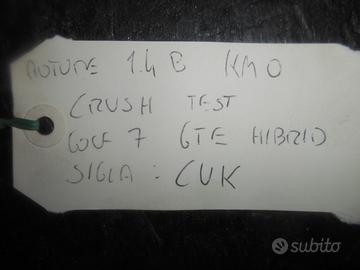 MOTORE 1.4 B KM0
CRUSH TEST
GOLF 7 GTE HIBRID
SIGLA : CUK
subito